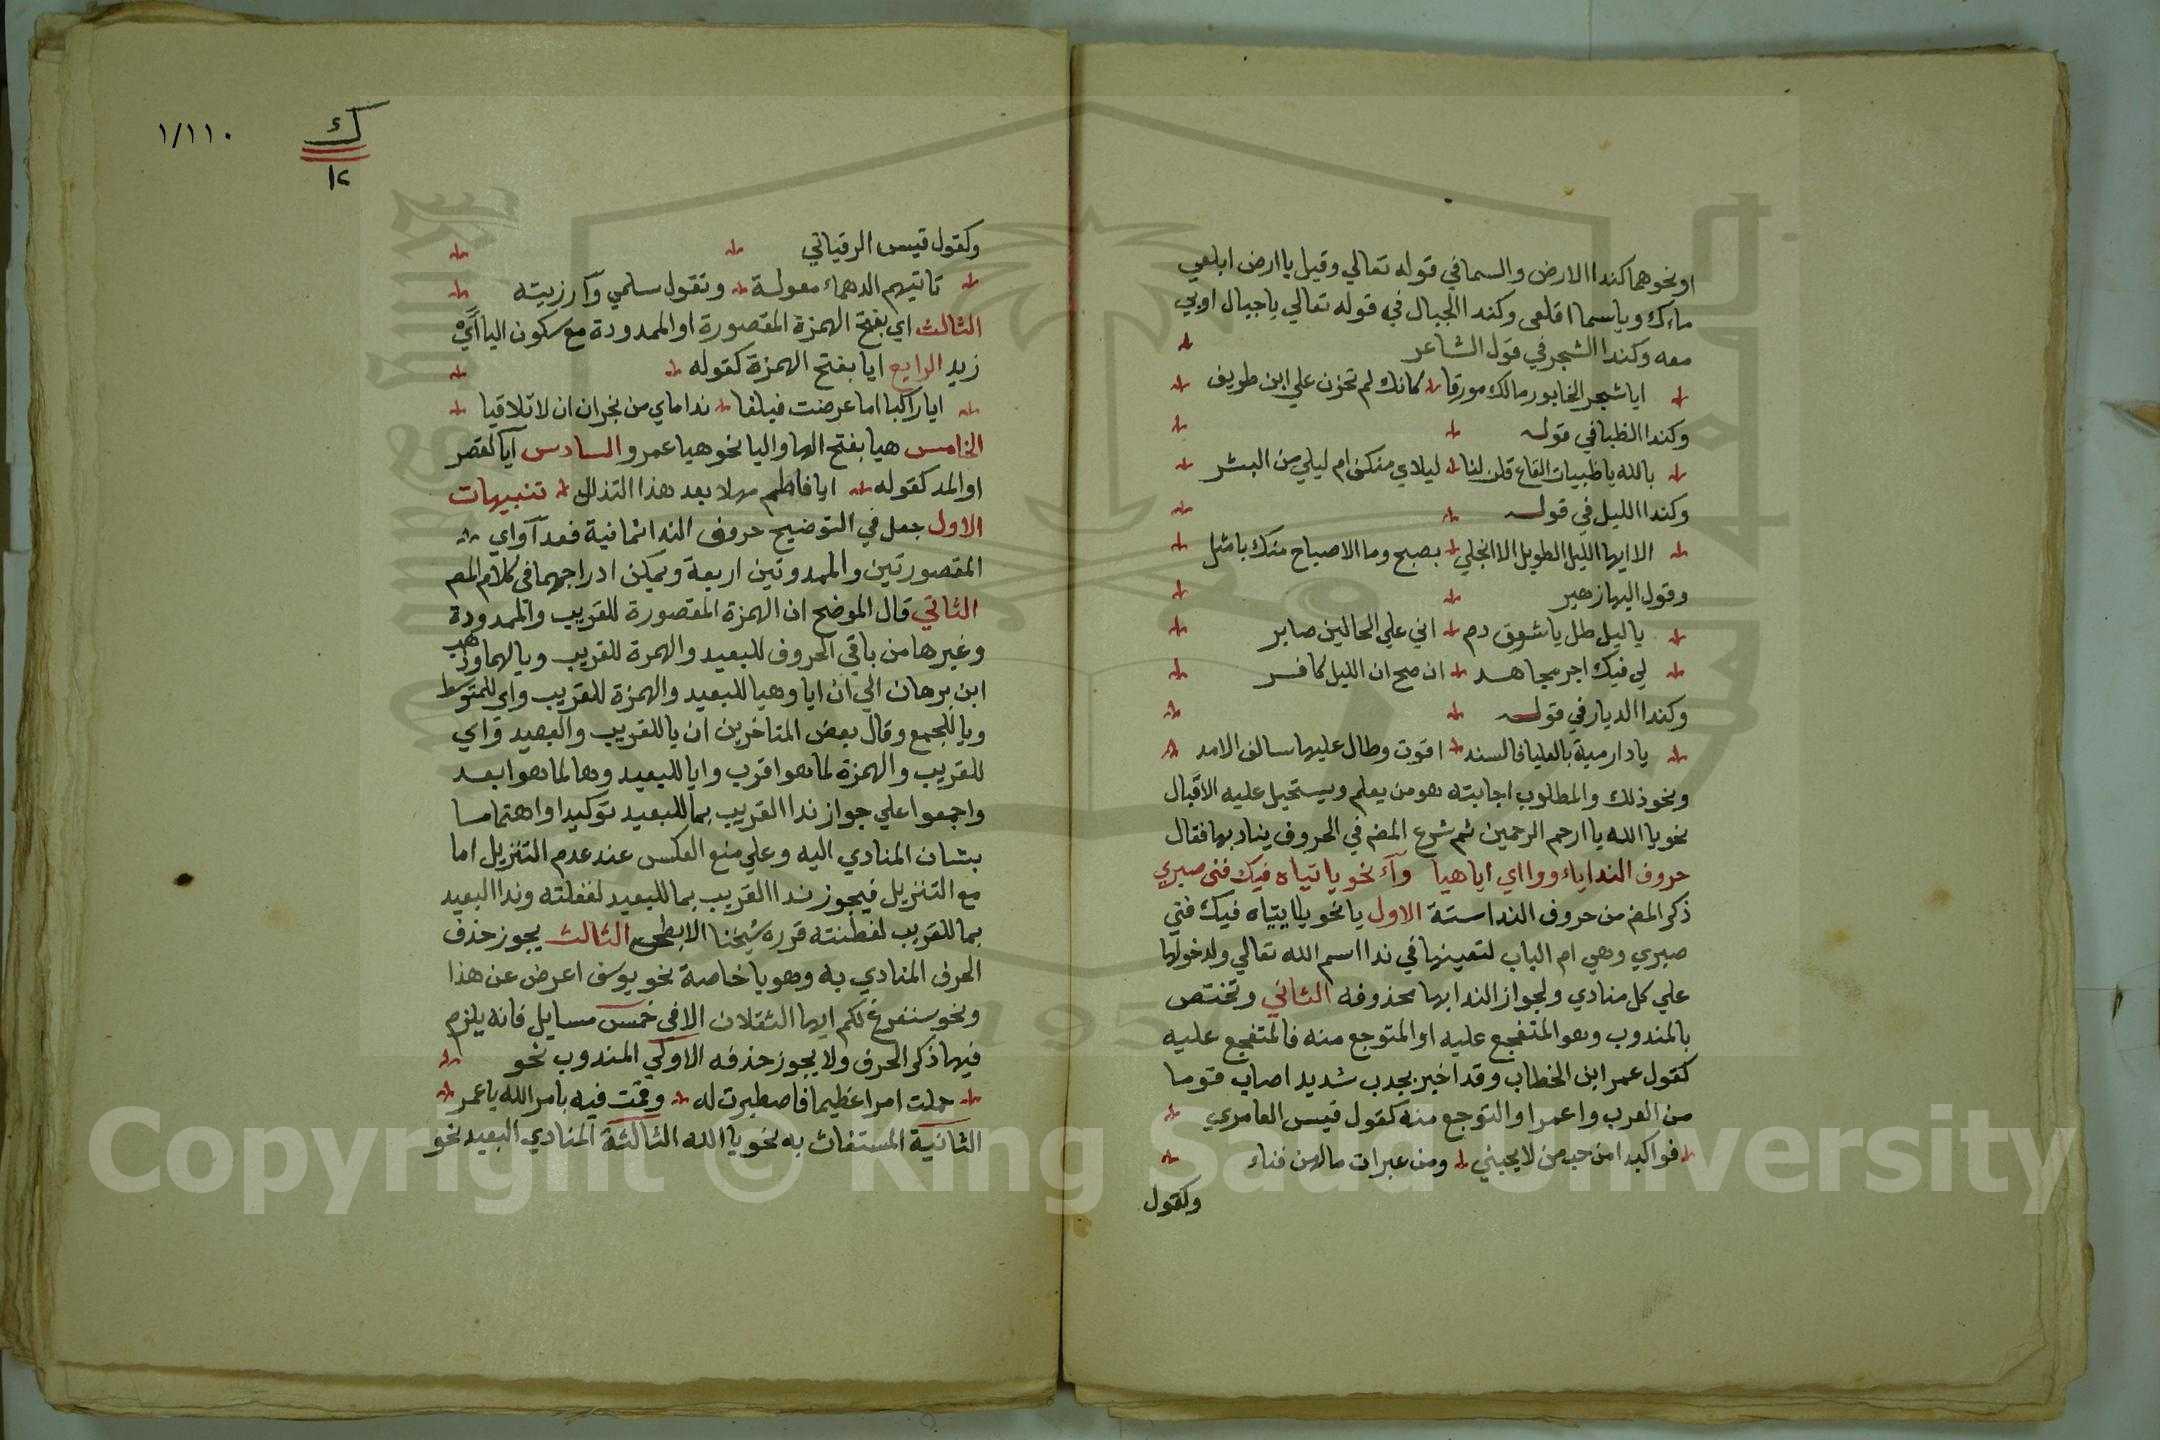 اونحوهما كندا الارض والسما في قوله تعالي وقيل يا ارض ابلعي
ماءك وياسما اقلعي وكندا الجبال في قوله تعالي يا جبال اوبي
معه وكندا الشجر في قول الشاعر
ايا شجر الخابور مالك مورقا كانك لم تحزن علي ابن طريف
وكندا الظبا في قوله
بالله يا ظبيات القاع قلن لنا ليلاي منكن ام ليلي من البشر
وكندا الليل في قوله
الا ايها الليل الطويل الا انجلي بصبح وما الاصباح منك بامثل
وقول البها زهير
يا ليل طل يا شوق دم اني علي الحالين صابر
لي فيك اجر مجاهد ان صح ان الليل كافر
وكندا الديار في قوله
يا دار مية بالعليا فالسند اقوت وطال عليها سالف الامد
ونحو ذلك والمطلوب اجابته هو من يعلم ويستحيل عليه الاقبال
نحو يا الله يا ارحم الرحمين ثم شرع المض في الحروف ينادبها فقال
حروف الندا ياء ووا اي ايا هيا وآء نحو يا تياه فيك فني صبري
ذكر المض من حروف الندا ستة الاول يا نحو يا تياه فيك فني
صبري وهي ام الباب لتعينها في ندا اسم الله تعالي ولدخولها
علي كل منادي ولجواز الندا بها محذوفه الثاني وتختص
بالمندوب وهو المتفجع عليه او المتوجع منه فالمتفجع عليه
كقول عمر ابن الخطاب وقد اخبر بجدب شديد اصاب قوما
من العرب واعمرا والتوجع منه كقول قيس العامري
فواكبدا من حب من لا يحبني ومن عبرات مالهن فناء
وكقول
١/١١٠
ك
١٢
وكقول قيس الرقياتي
تاتيهم الدهماء معولة وتقول سلمي وآرزيته
الثالث اي بفتح الهمزة المقصورة او الممدودة مع سكون اليا اي
زيد الرابع ايا بفتح الهمزة كقوله
ايا راكبا اما عرضت فبلغا نداماي من نجران ان لا تلاقيا
الخامس هيا بفتح الها واليا نحو هيا عمرو السادس آ بالقصر
او المد كقوله ايا فاطم مهلا بعد هذا التدلل تنبيهات
الاول جعل في التوضيح حروف الندا ثمانية فعد آ واي
المقصورتين والممدوتين اربعة ويمكن ادراجهما في كلام المص
الثاني قال الموضح ان الهمزة المقصورة للقريب والممدودة
وغيرها من باقي الحروف للبعيد والهمزة للقريب ويا لهما وذهب
ابن برهان الي ان ايا وهيا للبعيد والهمزة للقريب واي للمتوسط
ويا للجمع وقال بعض المتاخرين ان يا للقريب والبعيد واي
للقريب والهمزة لما هو اقرب وايا للبعيد وها لما هو ابعد
واجمعوا علي جواز ندا القريب بما للبعيد توكيدا واهتماما
بشان المنادي اليه وعلي منع العكس عند عدم التنزيل اما
مع التنزيل فيجوز ندا القريب بما للبعيد لغفلته وندا البعيد
بما للقريب لفطنته قرره شيخنا الابطحي الثالث يجوز حذف
الحرف المنادي به وهو يا خاصة نحو يوسف اعرض عن هذا
ونحو سنفرغ لكم ايها الثقلان الا في خمس مسايل فانه يلزم
فيها ذكر الحرف ولا يجوز حذفه الاولي المندوب نحو
حملت امرا عظيما فاصطبرت له وقمت فيه بامر الله يا عمر
الثانية المستغاث به نحو يا الله الثالثة المنادي البعيد نحو
Copyright © King Saud University